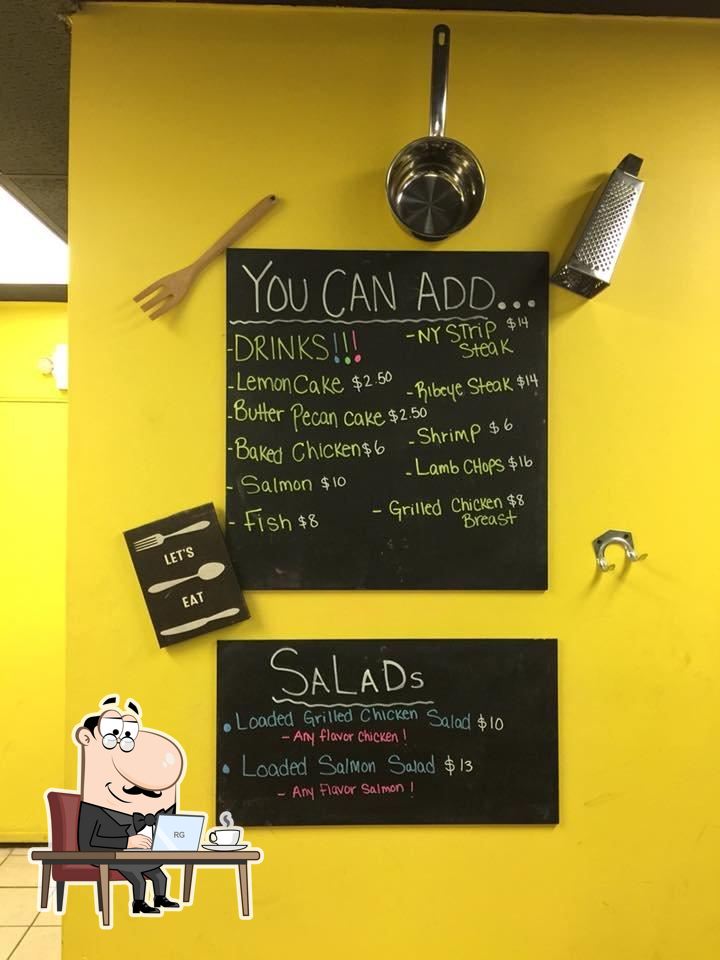 YOU CAN ADD...
-DRINKS!!!
-Lemon Cake $2.50
-Butter Pecan Cake $2.50
-Baked Chicken $6
- Salmon $10
- Fish $8
-NY Strip $14
Steak
-Ribeye Steak $14
-Shrimp $6
-Lamb CHOPS $16
- Grilled Chicken $8
Breast
LET'S
EAT
SALADS
• Loaded Grilled Chicken Salad $10
- Any flavor Chicken!
• Loaded Salmon Salad $13
- Any Flavor Salmon!
RG